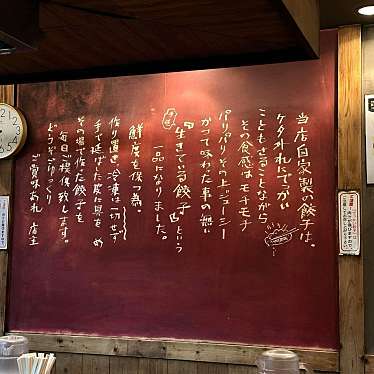 当店自家製の餃子は、
ケタ外れにでっかい
こともさることながら、
その食感はモチモチ
パリパリ、その上ジューシー
かつて味わった事の無い
『生きている餃子』という
一品になりました。
鮮度を保つ為、
作り置き、冷凍は一切せず
手で延ばした皮に具をつめ
その場で作った餃子を
毎日ご提供致します。
どうぞごゆっくり
ご賞味あれ 店主